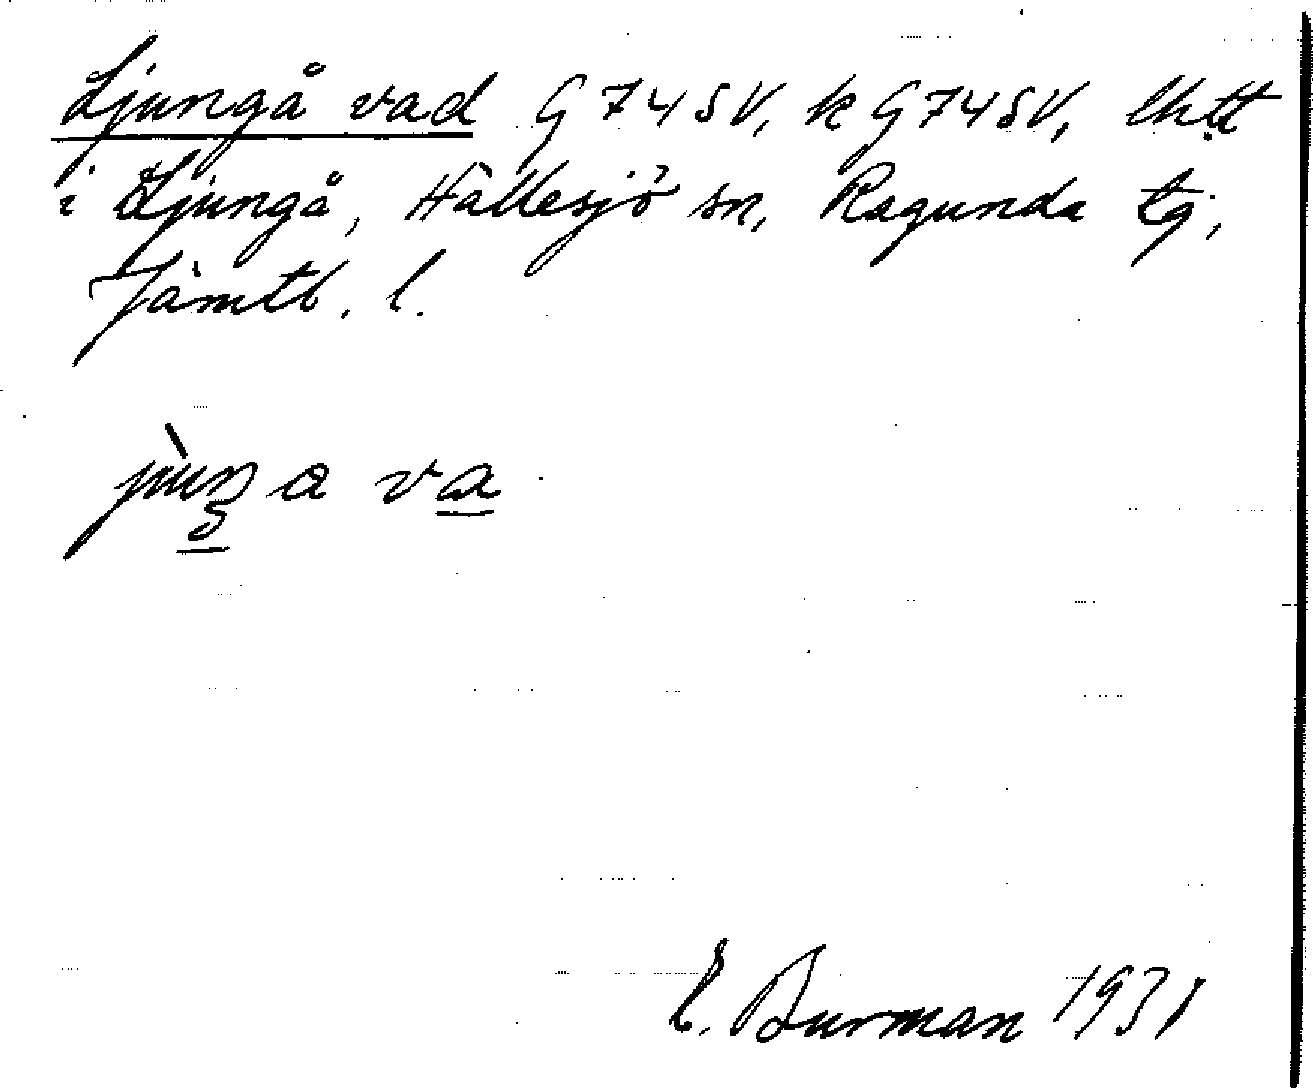 Ljungå vad G74SV, k G74SV,
i Ljungå, Hällesjö sn, Ragunda tg,
Jämtl. l.
va
E. Burman 1931